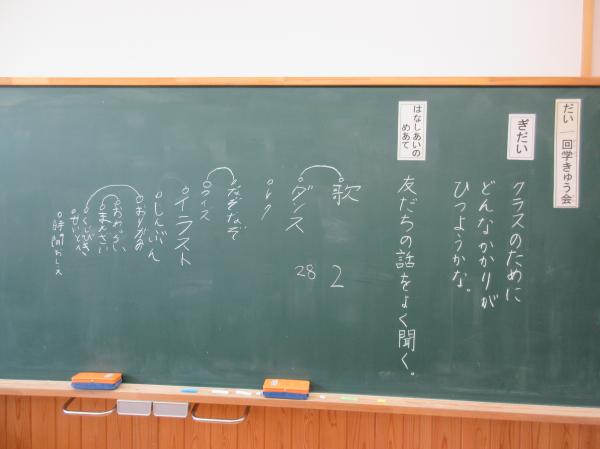 だい一回学きゅう会
ぎだい
クラスのために
どんなかかりが
ひつようかな。
はなしあいの
めあて
友だちの話をよく聞く。
歌
2
ダンス
28
レク
なぞなぞ
クイズ
イラスト
しんぶん
おりがみ
おわらい
まんざい
くじびき
せいとん